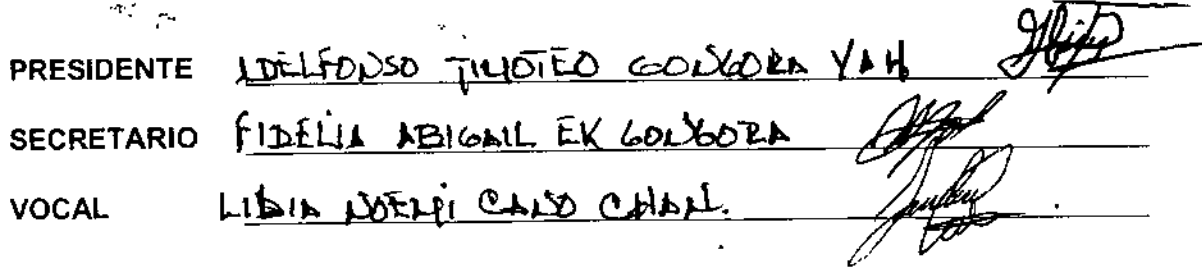 PRESIDENTE IDELFONSO TIMOTEO GONGORA YAH
SECRETARIO FIDELIA ABIGAIL EK GONGORA
VOCAL LIDIA NOEMI CANO CHAN.